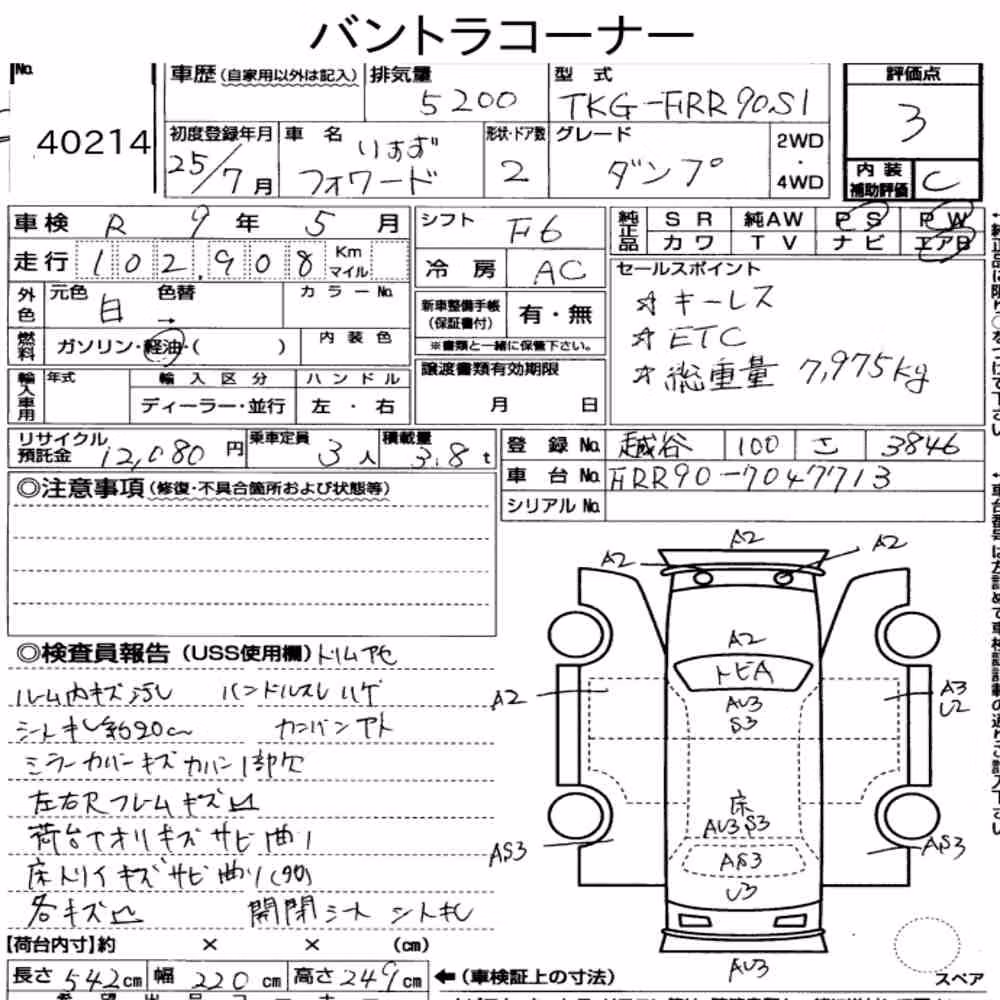 バントラコーナー
No. 40214
車歴 (自家用以外は記入) 排気量 5200 型式 TKG-FRR90S1 評価点 3
初度登録年月 25/7月 車名 いすず フォワード 形状・ドア数 2 グレード ダンプ 2WD・4WD 内装補助評価 C
車検 R 9年 5月 シフト F6 純正品 SR 純AW PS PW
カワ TV ナビ エアB
走行 102,908 Km マイル 冷房 AC
セールスポイント
☆キーレス
☆ETC
☆総重量 7,975kg
外色 元色 白 → 色替 カラーNo.
新車整備手帳 (保証書付) 有・無
※書類と一緒に保管下さい。
燃料 ガソリン・軽油・( ) 内装色
輸入車用 年式 輸入区分 ハンドル
ディーラー・並行 左・右
譲渡書類有効期限
月 日
リサイクル預託金 12,080円 乗車定員 3人 積載量 3.8t
登録No. 越谷 100 3846
車台No. FRR90-7047713
シリアルNo.
◎注意事項 (修復・不具合箇所および状態等)
◎検査員報告 (USS使用欄) トリムアセ
ルーム内キズ汚レ ハンドルスレ ハゲ
シートキレ約20cm カンバンアト
ミラーカバーキズ カバー1部欠
左右Rフレームキズ凹
荷台アオリキズ サビ 曲り
床 キズ サビ 曲り
各キズ凹 開閉シート シートキレ
A2
A2
A2
A2
トビA
A2
AU3
S3
A3
U2
床
AU3 S3
AS3
AS3
AS3
U3
AU3
スペア
【荷台内寸】約 × × (cm)
長さ 542cm 幅 220cm 高さ 249cm ←(車検証上の寸法)